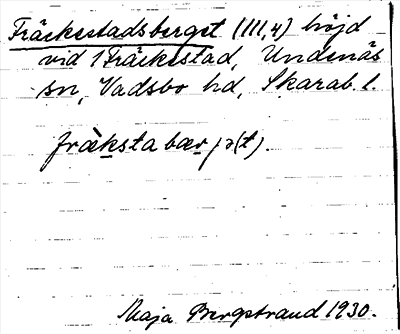 Fräckestadsberget (III,4) höjd
vid 1 Fräckestad, Undenäs
sn, Vadsbo hd, Skarab. l.
fräksta bær ja(t).
Maja Bergstrand 1930.